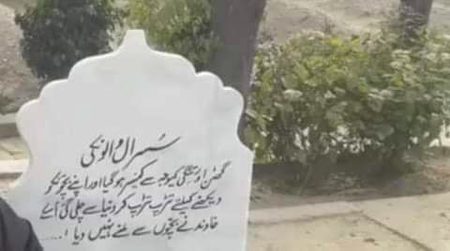 سسرال والونکی
گھٹن اور تنگی کیوجہ سے کینسر ہوگیا اور اپنے بچونکو
دیکھنے کیلئے تڑپ تڑپ کر دنیا سے چلی گئی اُسکے
خاوند نے بچوں سے ملنے نہیں دیا !....